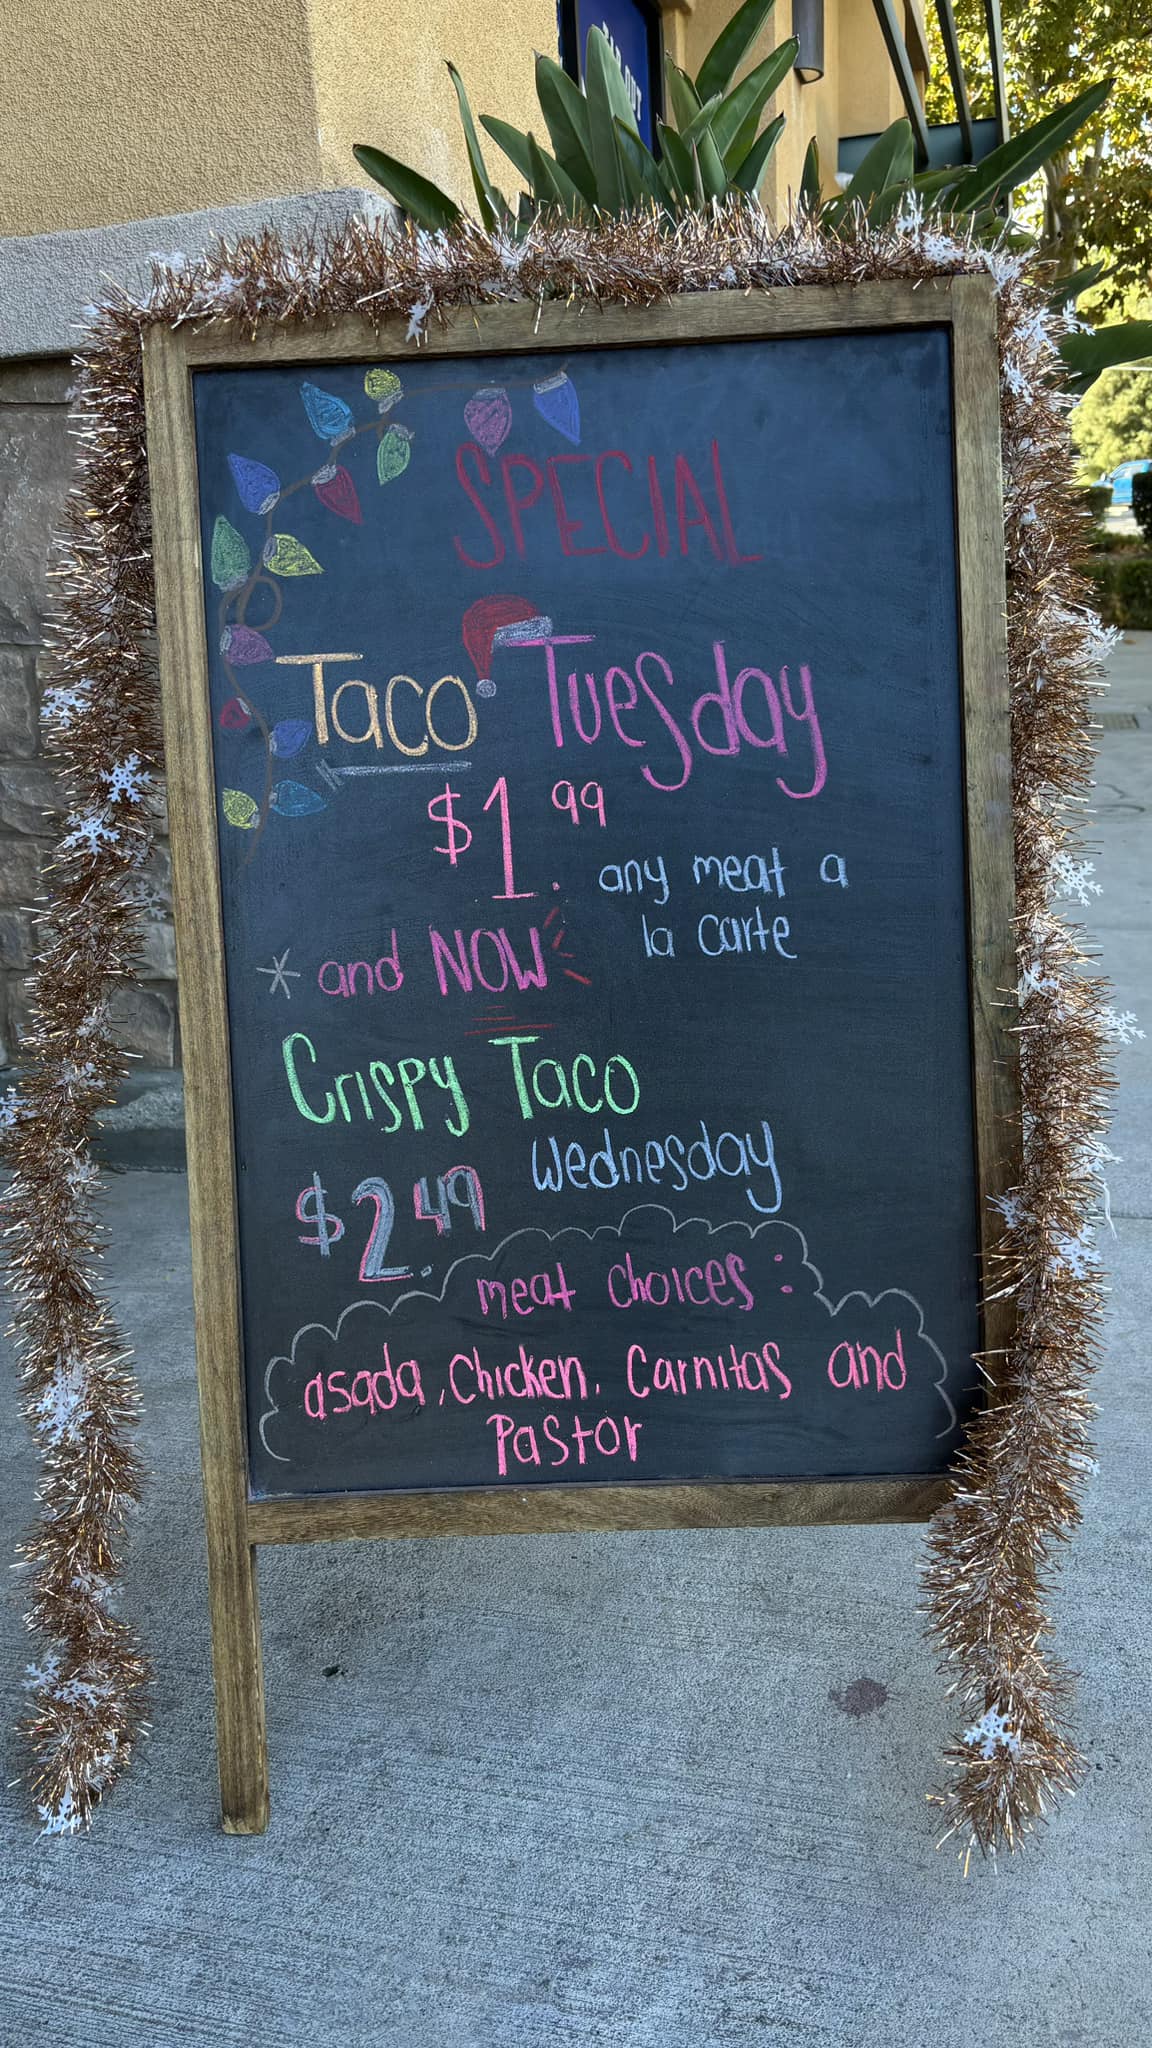 SPECIAL
Taco Tuesday
$1.99
any meat a
la carte
* and NOW
Crispy Taco
Wednesday
$2.49
meat choices:
asada, Chicken, Carnitas and
Pastor